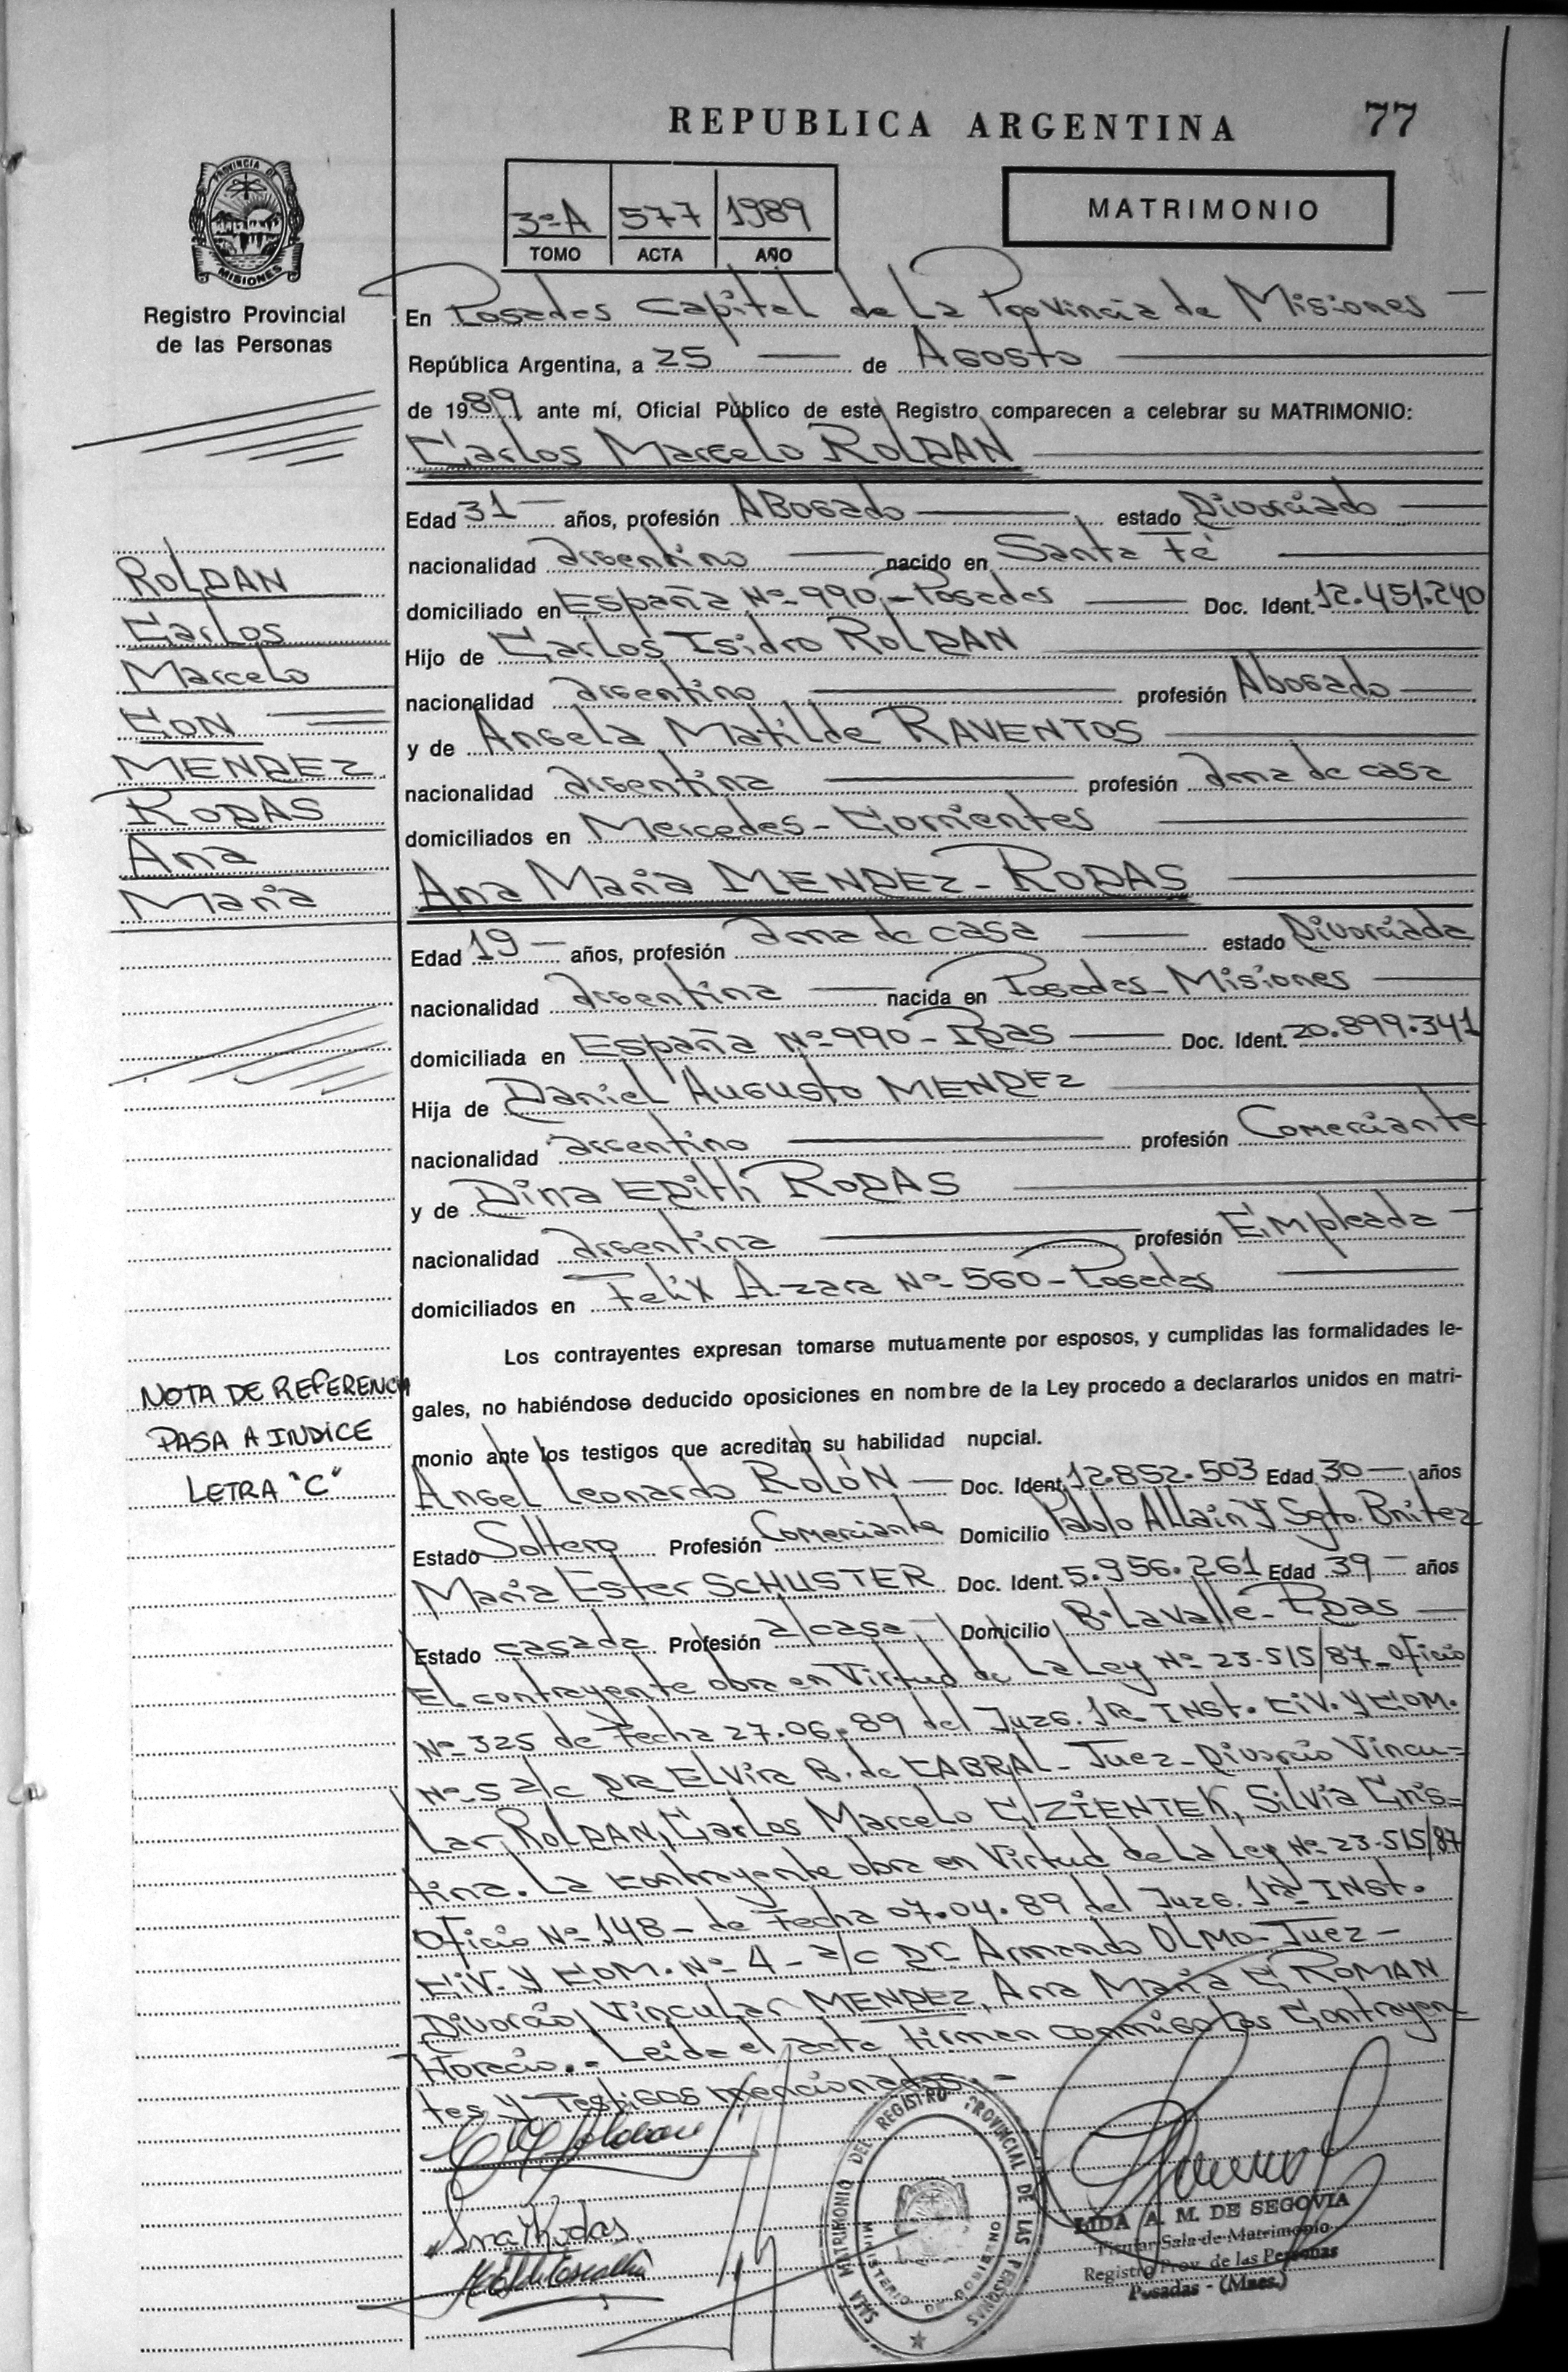 REPUBLICA ARGENTINA 77
PROVINCIA DE MISIONES
Registro Provincial
de las Personas
3º A 577 1989
TOMO ACTA AÑO
MATRIMONIO
En Posadas Capital de La Provincia de Misiones
República Argentina, a 25 de Agosto
de 1989 ante mí, Oficial Público de este Registro comparecen a celebrar su MATRIMONIO:
Carlos Marcelo ROLDAN
Edad 31 años, profesión Abogado estado Divorciado
nacionalidad argentino nacido en Santa Fé
domiciliado en España Nº 990 - Posadas Doc. Ident. 12.451.240
Hijo de Carlos Isidro ROLDAN
nacionalidad argentino profesión Abogado
y de Angela Matilde RAVENTOS
nacionalidad argentina profesión ama de casa
domiciliados en Mercedes - Corrientes
Ana María MENDEZ - RODAS
Edad 19 años, profesión ama de casa estado Divorciada
nacionalidad argentina nacida en Posadas - Misiones
domiciliada en España Nº 990 - Pdas Doc. Ident. 20.899.341
Hija de Daniel Augusto MENDEZ
nacionalidad argentino profesión Comerciante
y de Dina Edith RODAS
nacionalidad argentina profesión Empleada
domiciliados en Felix Azara Nº 560 - Posadas
Los contrayentes expresan tomarse mutuamente por esposos, y cumplidas las formalidades le-
gales, no habiéndose deducido oposiciones en nombre de la Ley procedo a declararlos unidos en matri-
monio ante los testigos que acreditan su habilidad nupcial.
Angel Leonardo ROLÓN Doc. Ident. 12.852.503 Edad 30 años
Estado Soltero Profesión Comerciante Domicilio Pablo Allain y Sgto. Bnitez
María Ester SCHUSTER Doc. Ident. 5.956.261 Edad 39 años
Estado casada Profesión a/casa Domicilio Bº Lavalle - Pdas
El contrayente obra en Virtud de La Ley Nº 23.515/87 - Oficio
Nº 325 de Fecha 27.06.89 del Juzg. 1ra INST. CIV. Y COM.
Nº 5 a/c DRA ELVira B. de CABRAL - Juez - Divorcio Vincu-
Lar, ROLDAN, Carlos Marcelo C/ ZIENTEK, Silvia Cris-
tina. La contrayente obra en Virtud de La Ley Nº 23.515/87
Oficio Nº 148 - de Fecha 07.04.89 del Juzg. 1ra INST.
CIV. Y COM. Nº 4 - a/c Dr Armando OLMO - Juez -
Divorcio Vincular MENDEZ, Ana María C/ ROMAN
Horacio.- Leida el acta, firman conmigo Los Contrayen-
tes y Testigos mencionados.-
ROLDAN
Carlos
Marcelo
CON
MENDEZ
RODAS
Ana
María
NOTA DE REFERENCIA
PASA A INDICE
LETRA "C"
SALA MATRIMONIO DEL REGISTRO PROVINCIAL DE LAS PERSONAS
MINISTERIO DE GOBIERNO
LIDA A. M. DE SEGOVIA
Titular Sala de Matrimonio
Registro Prov. de las Personas
Posadas - (Mnes.)